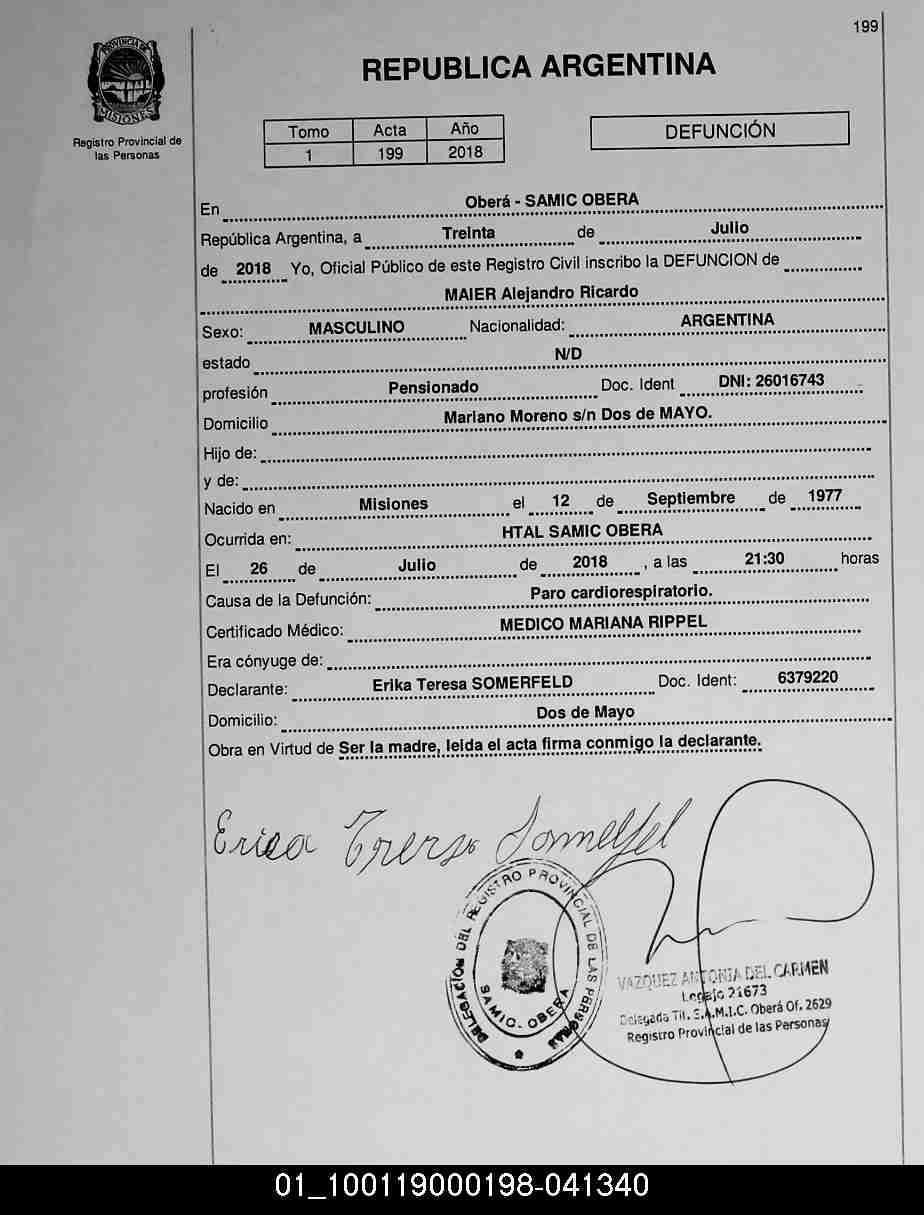 199
PROVINCIA DE
MISIONES
Registro Provincial de
las Personas
REPUBLICA ARGENTINA
Tomo Acta Año
1 199 2018
DEFUNCIÓN
En Oberá - SAMIC OBERA
República Argentina, a Treinta de Julio
de 2018 Yo, Oficial Público de este Registro Civil inscribo la DEFUNCION de
MAIER Alejandro Ricardo
Sexo: MASCULINO Nacionalidad: ARGENTINA
estado N/D
profesión Pensionado Doc. Ident DNI: 26016743
Domicilio Mariano Moreno s/n Dos de MAYO.
Hijo de:
y de:
Nacido en Misiones el 12 de Septiembre de 1977
Ocurrida en: HTAL SAMIC OBERA
El 26 de Julio de 2018, a las 21:30 horas
Causa de la Defunción: Paro cardiorespiratorio.
Certificado Médico: MEDICO MARIANA RIPPEL
Era cónyuge de:
Declarante: Erika Teresa SOMERFELD Doc. Ident: 6379220
Domicilio: Dos de Mayo
Obra en Virtud de Ser la madre, leida el acta firma conmigo la declarante.
Erica
DELEGACION DEL REGISTRO PROVINCIAL DE LAS PERSONAS
SAMIC. OBERA
VAZQUEZ ANTONIA DEL CARMEN
Legajo 21673
Delegada Tit. S.A.M.I.C. Oberá Of. 2629
Registro Provincial de las Personas
01_100119000198-041340